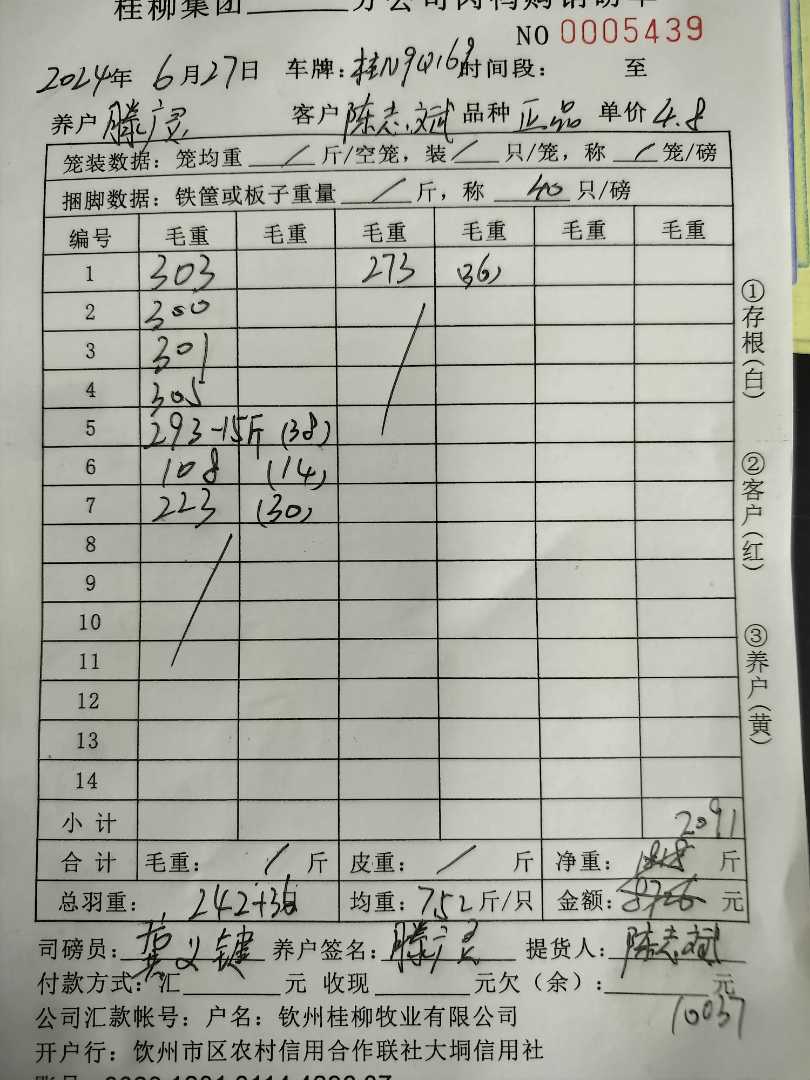 桂柳集团______分公司肉鸭购销磅单
NO 0005439
2024年 6月27日 车牌:桂N9Q169 时间段: 至
养户 滕广灵 客户 陈志斌 品种 正品 单价 4.8
笼装数据: 笼均重 / 斤/空笼, 装 / 只/笼, 称 / 笼/磅
捆脚数据: 铁筐或板子重量 / 斤, 称 40 只/磅
编号 毛重 毛重 毛重 毛重 毛重 毛重
1 303 273 (36)
2 300
3 301
4 305
5 293-15斤 (38)
6 108 (14)
7 223 (30)
8
9
10
11
12
13
14
小计 2091
合计 毛重: / 斤 皮重: / 斤 净重: 1818 斤
总羽重: 242+36 均重: 7.52 斤/只 金额: 8726 元
司磅员: 龚义键 养户签名: 滕广灵 提货人: 陈志斌
付款方式: 汇______元 收现______元欠(余):______元
10037
公司汇款帐号: 户名: 钦州桂柳牧业有限公司
开户行: 钦州市区农村信用合作联社大垌信用社
①存根(白)
②客户(红)
③养户(黄)